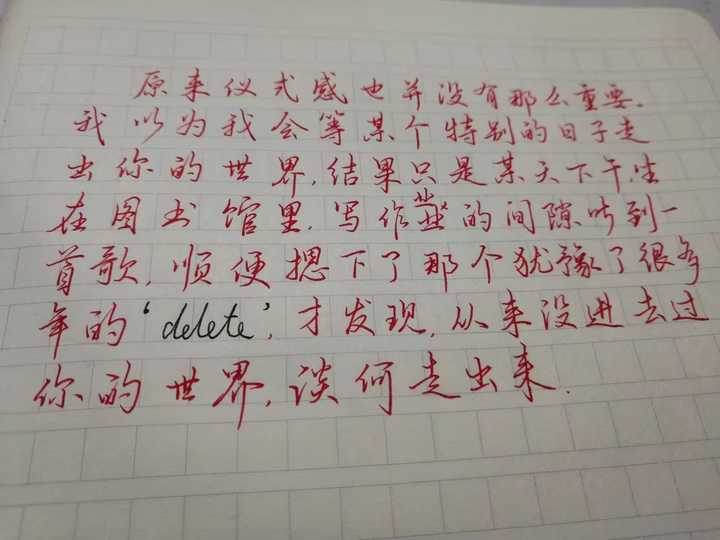 原来仪式感也并没有那么重要.
我以为我会等某个特别的日子走
出你的世界,结果只是某天下午,坐
在图书馆里,写作业的间隙听到一
首歌,顺便摁下了那个犹豫了很多
年的‘delete’,才发现,从来没进去过
你的世界,谈何走出来.